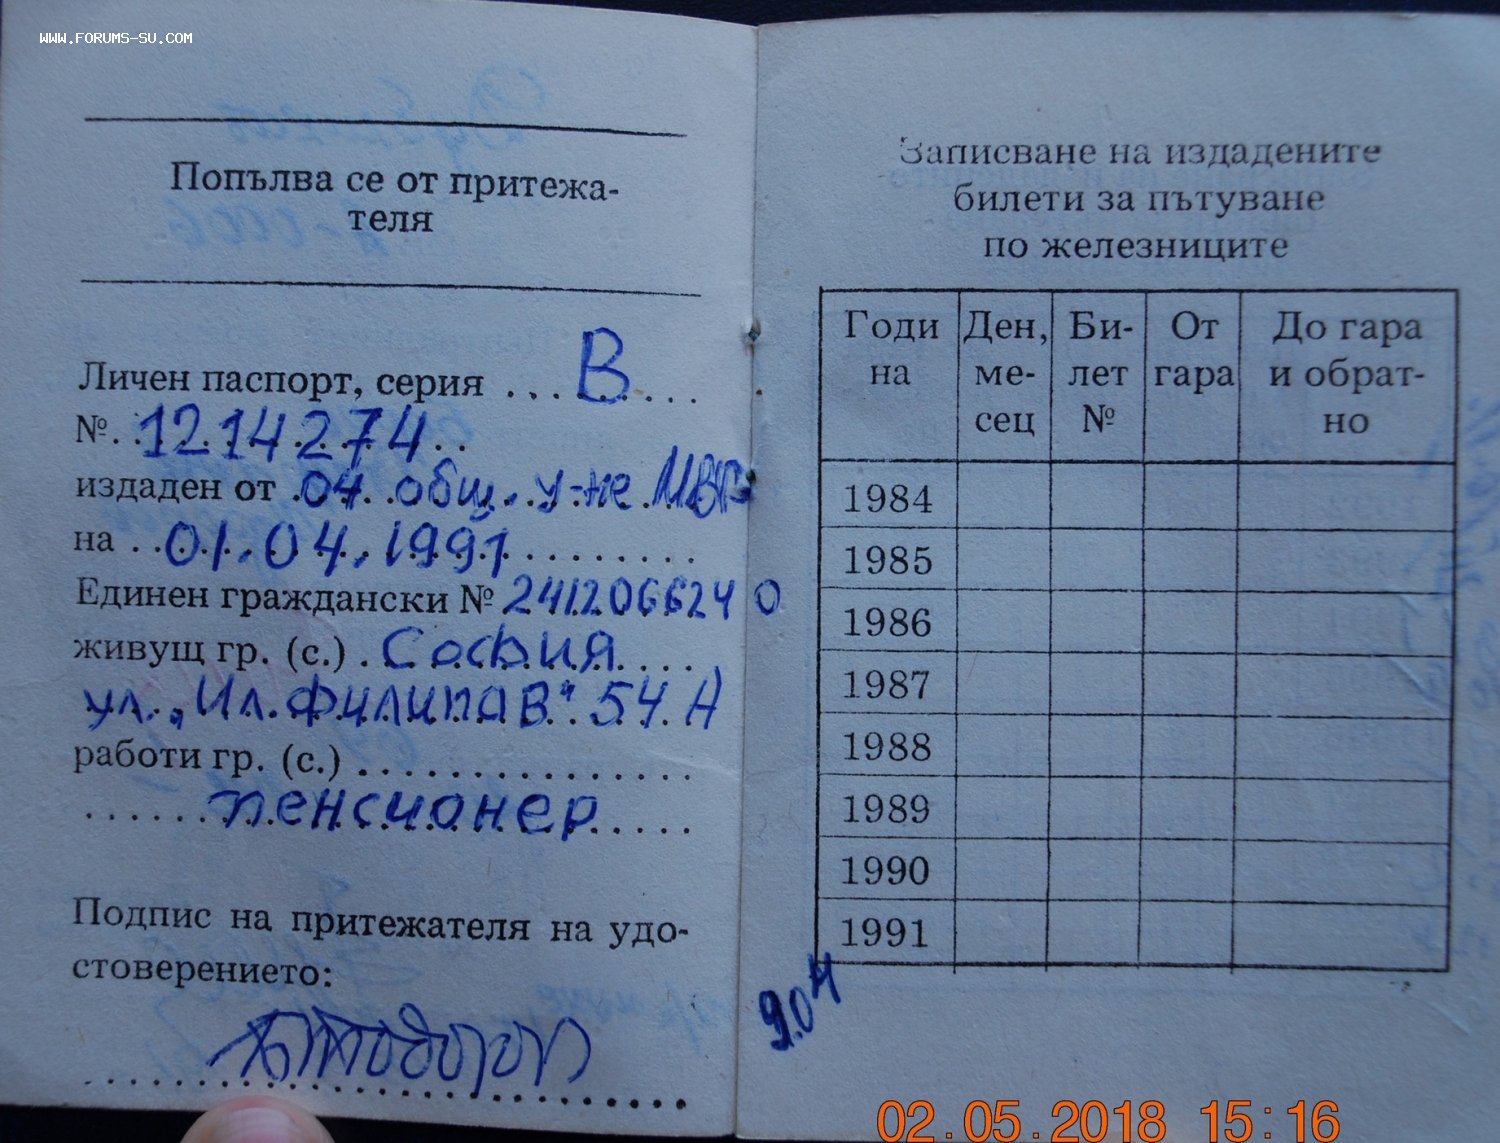 WWW.FORUMS-SU.COM
Попълва се от притежа-
теля
Личен паспорт, серия ... В ...
№ 1214274
издаден от 04 общ. у-ие МВР
на 01.04.1991
Единен граждански № 2412066240
живущ гр. (с.) София
ул. „Ил. Филипов" 54 А
работи гр. (с.) ................
пенсионер
Подпис на притежателя на удо-
стоверението:
Записване на издадените
билети за пътуване
по железниците
Годи Ден, Би- От До гара
на ме- лет гара и обрат-
сец № но
1984
1985
1986
1987
1988
1989
1990
1991
904
02.05.2018 15:16